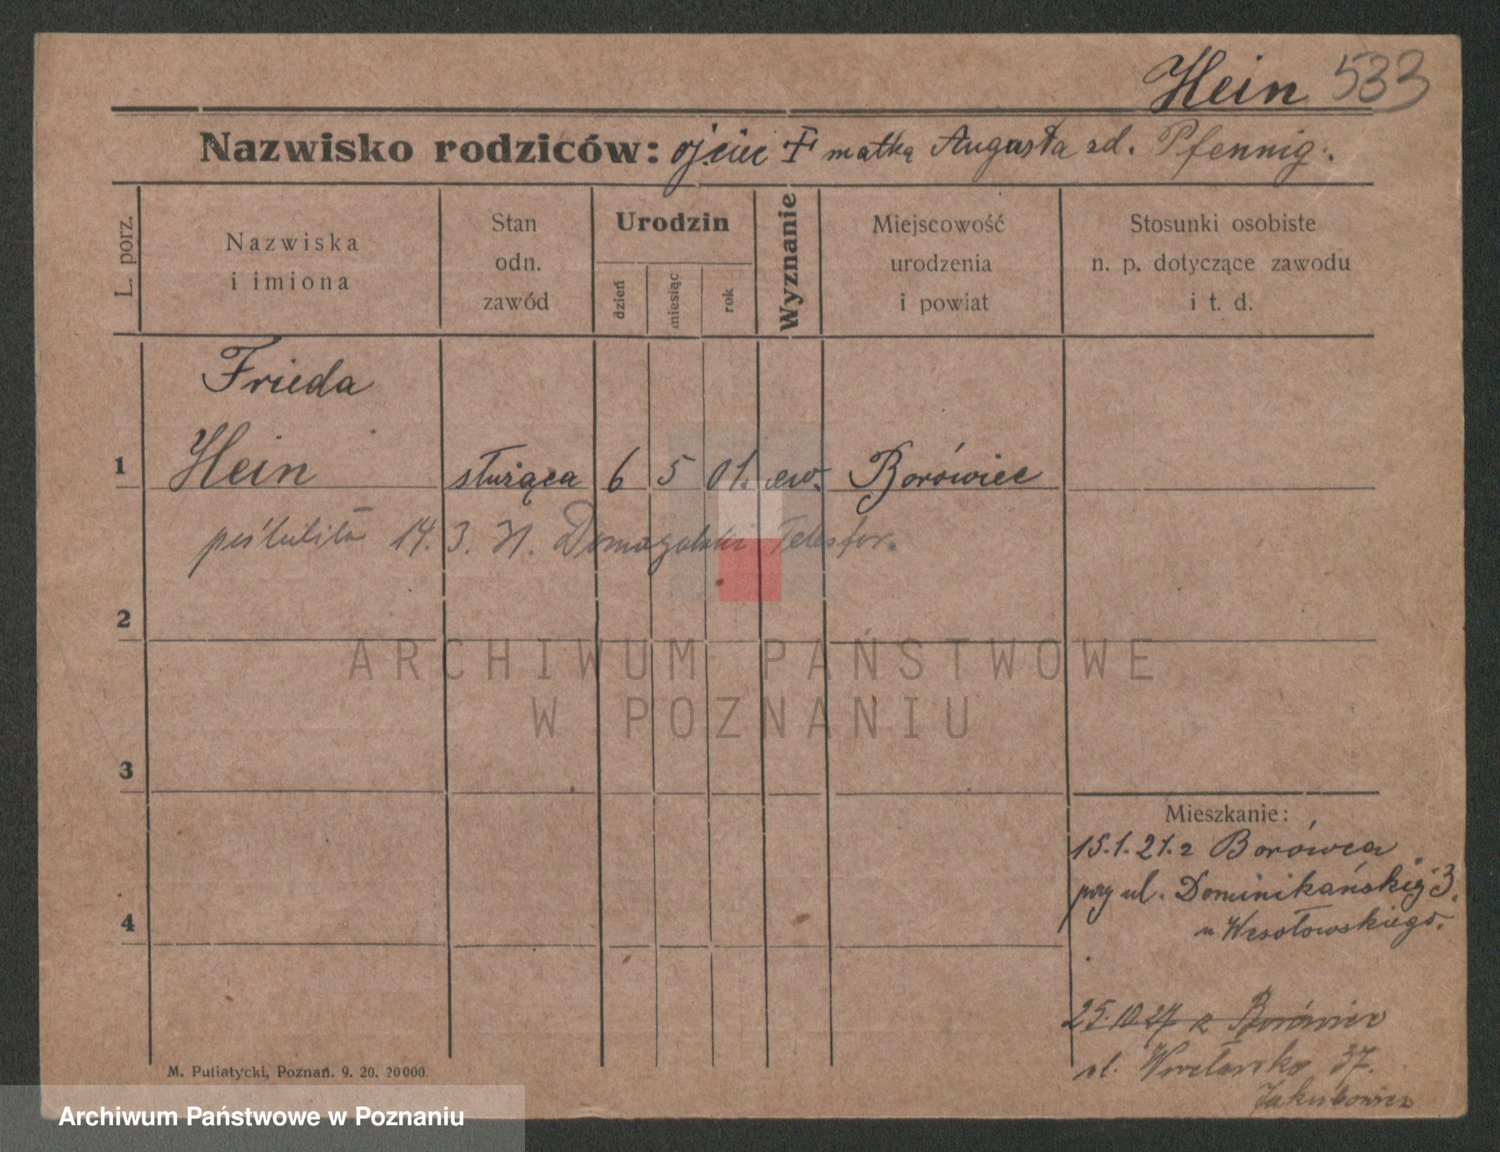 Hein 533
Nazwisko rodziców: ojciec † matka Augusta zd. Pfennig.
L. porz.
Nazwiska
i imiona
Stan
odn.
zawód
Urodzin
dzień
miesiąc
rok
Wyznanie
Miejscowość
urodzenia
i powiat
Stosunki osobiste
n. p. dotyczące zawodu
i t. d.
Frieda
1 Hein służąca 6 5 01. ew. Borówiec
poślubiła 14. 3. Domagalski Telesfor.
2
ARCHIWUM PAŃSTWOWE
W POZNANIU
3
Mieszkanie:
15.1.21. z Borówca
przy ul. Dominikańskiej 3.
u Wesołowskiego.
4
25.10.27 z Borówiec
ul. Wrocławska 37.
Jakubowicz
M. Putiatycki, Poznań. 9. 20. 20000.
Archiwum Państwowe w Poznaniu